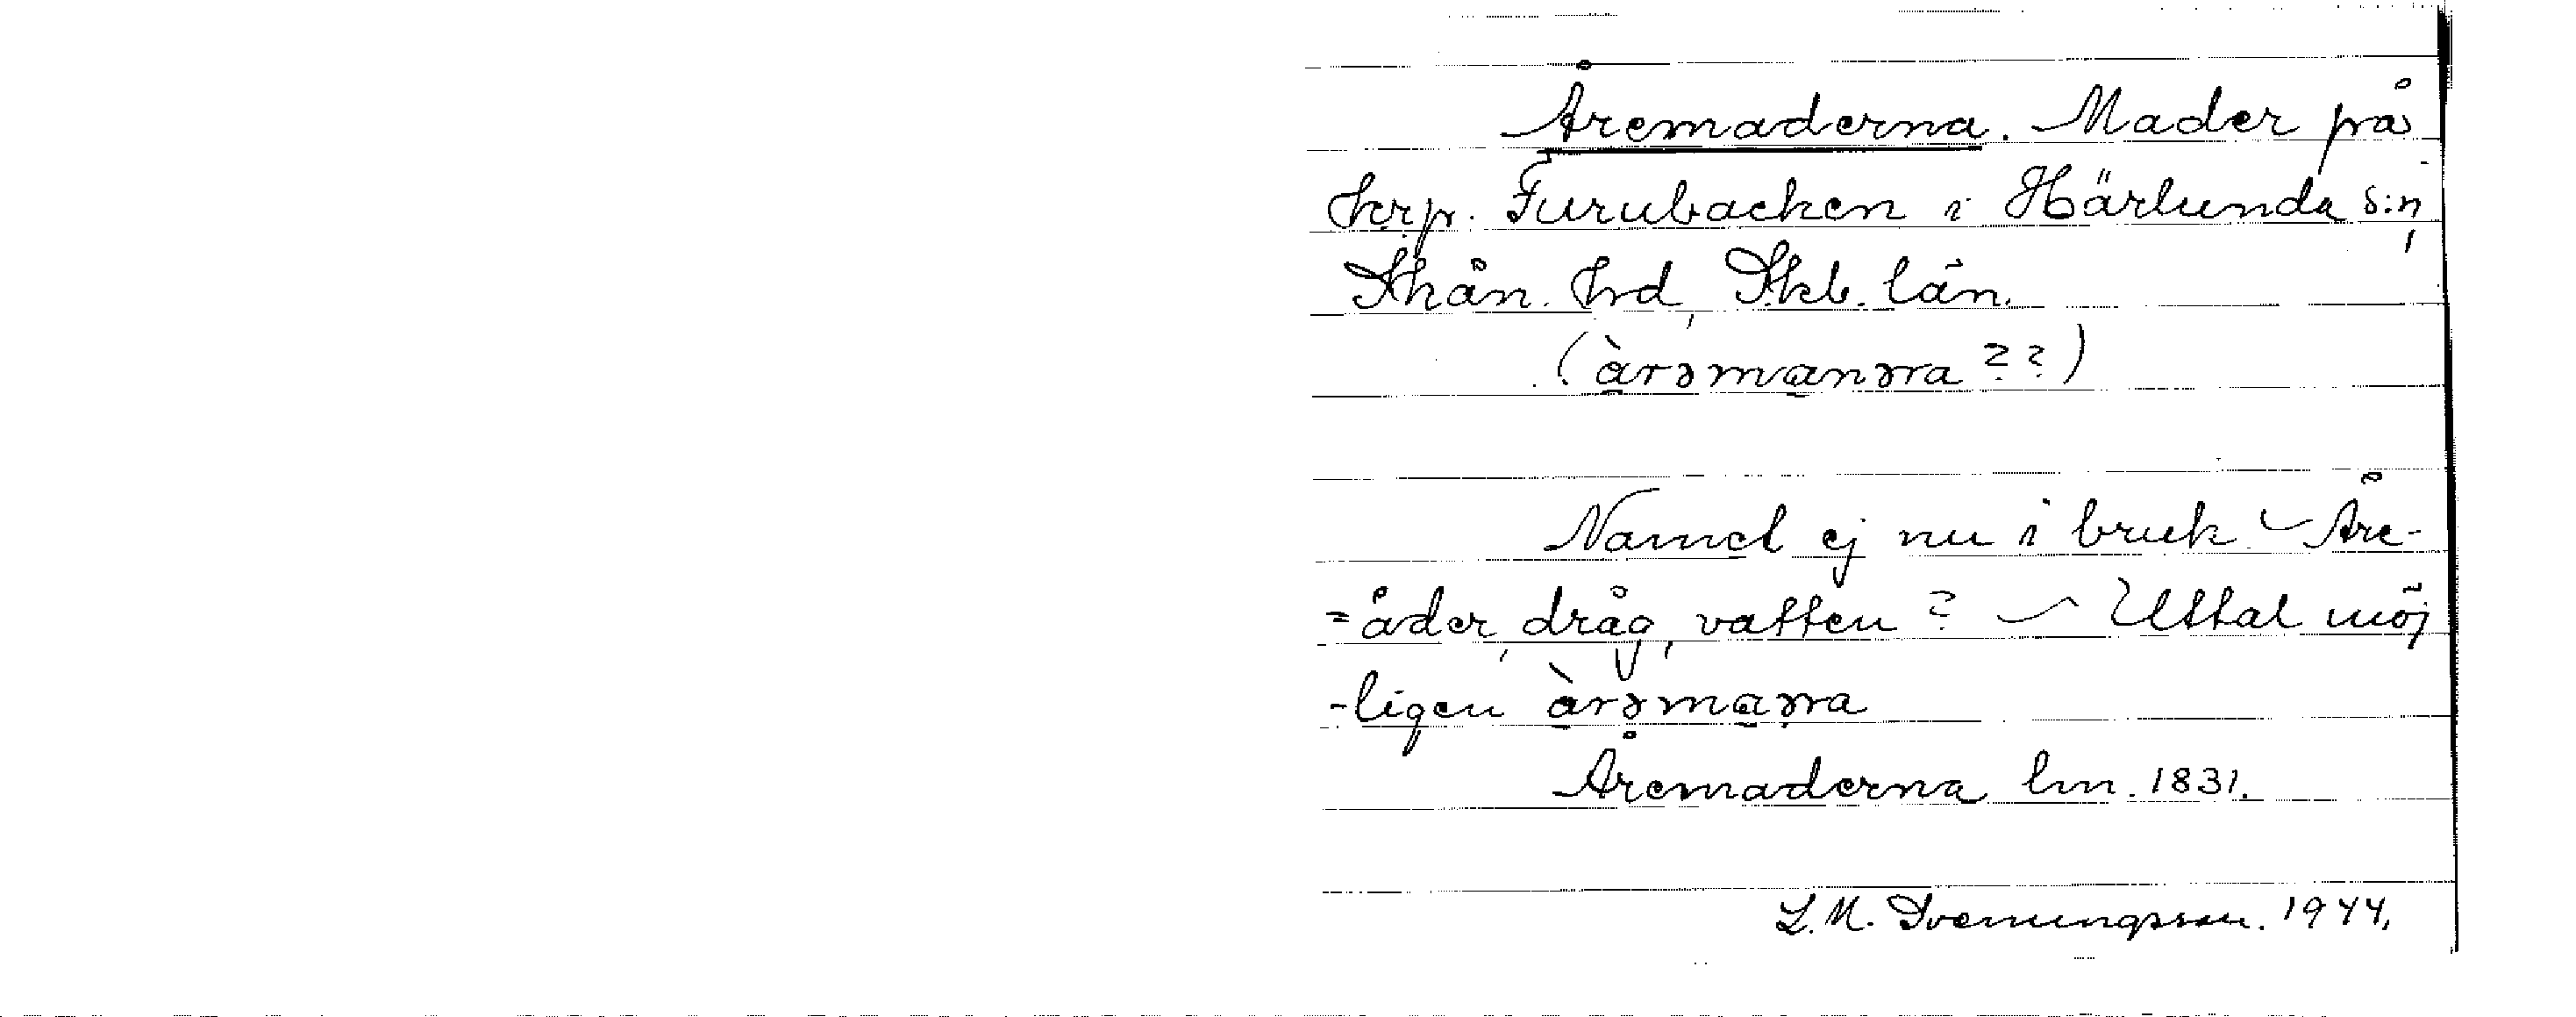 Åremaderna. Mader på
Torp. Furubacken i Härlunda s:n,
Skån. hrd, Skb. län.
(àrəmanəra ??)
Namet ej nu i bruk – Åre-
= åder, dråg, vatten? – Uttal möj
-ligen àrəmaəra
Åremaderna lm. 1831.
L. M. Svenungsson. 1944.